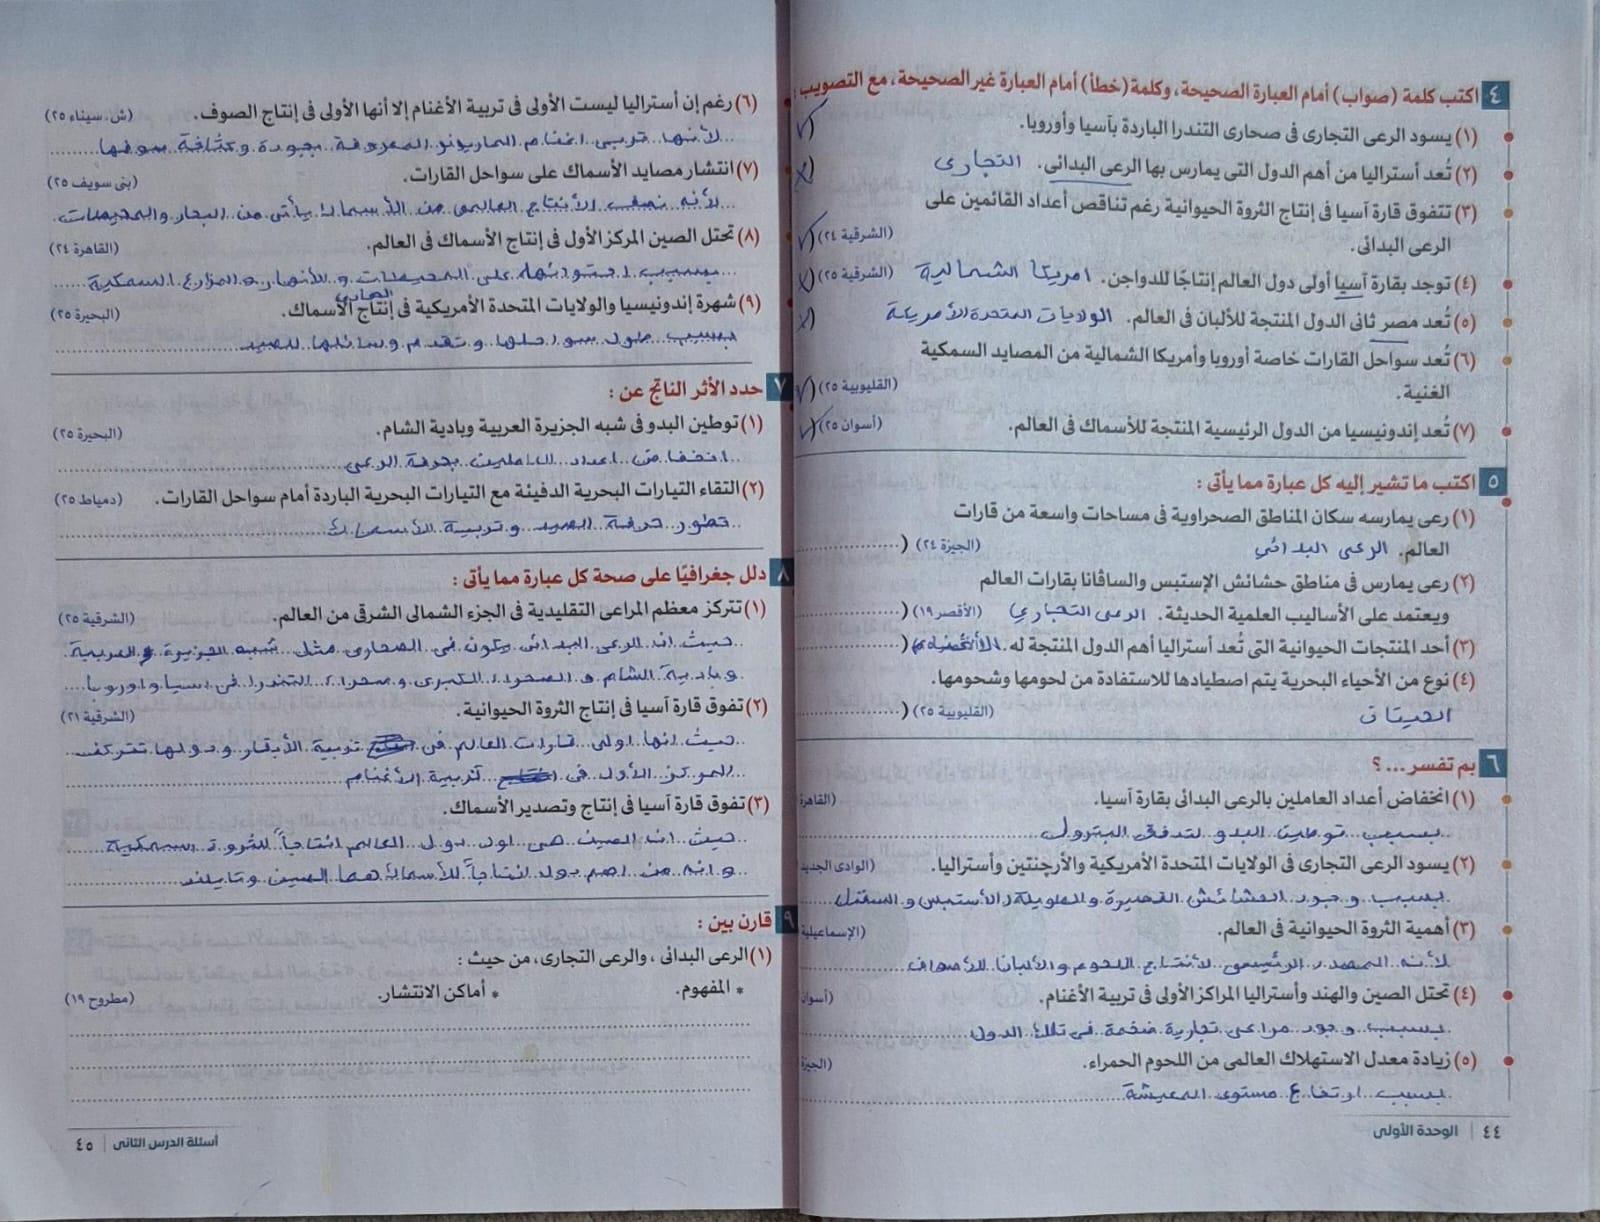 ٤ اكتب كلمة (صواب) أمام العبارة الصحيحة، وكلمة (خطأ) أمام العبارة غير الصحيحة، مع التصويب:
(١) يسود الرعى التجارى فى صحارى التندرا الباردة بآسيا وأوروبا. (✓
(٢) تُعد أستراليا من أهم الدول التى يمارس بها الرعى البدائى. التجارى (✗
(٣) تتفوق قارة آسيا فى إنتاج الثروة الحيوانية رغم تناقص أعداد القائمين على
الرعى البدائى. (الشرقية ٢٤) (✓
(٤) توجد بقارة آسيا أولى دول العالم إنتاجًا للدواجن. امريكا الشمالية (الشرقية ٢٥) (✗
(٥) تُعد مصر ثانى الدول المنتجة للألبان فى العالم. الولايات المتحدة الأمريكة (✗
(٦) تُعد سواحل القارات خاصة أوروبا وأمريكا الشمالية من المصايد السمكية
الغنية. (القليوبية ٢٥) (✓
(٧) تُعد إندونيسيا من الدول الرئيسية المنتجة للأسماك فى العالم. (أسوان ٢٥) (✓
٥ اكتب ما تشير إليه كل عبارة مما يأتى :
(١) رعى يمارسه سكان المناطق الصحراوية فى مساحات واسعة من قارات
العالم. الرعى البدائي (الجيزة ٢٤) (
(٢) رعى يمارس فى مناطق حشائش الإستبس والساڤانا بقارات العالم
ويعتمد على الأساليب العلمية الحديثة. الرعى التجاري (الأقصر ١٩) (
(٣) أحد المنتجات الحيوانية التى تُعد أستراليا أهم الدول المنتجة له. (
(٤) نوع من الأحياء البحرية يتم اصطيادها للاستفادة من لحومها وشحومها.
الحيتان (القليوبية ٢٥) (
٦ بم تفسر ...؟
(١) انخفاض أعداد العاملين بالرعى البدائى بقارة آسيا. (القاهرة
بسبب توطين البدو لتدفق البترول
(٢) يسود الرعى التجارى فى الولايات المتحدة الأمريكية والأرجنتين وأستراليا. (الوادى الجديد
بسبب وجود الحشائش القصيرة والطويلة (الأستبس و السفانا
(٣) أهمية الثروة الحيوانية فى العالم. (الإسماعيلية
لأنه المصدر الرئيسى لأنتاج اللحوم والألبان للأصواف
(٤) تحتل الصين والهند وأستراليا المراكز الأولى فى تربية الأغنام. (أسوان
بسبب وجود مراعى تجارية ضخمة فى تلك الدول
(٥) زيادة معدل الاستهلاك العالمى من اللحوم الحمراء. (الجيزة
بسبب ارتفاع مستوى المعيشة
٤٤ | الوحدة الأولى
(٦) رغم إن أستراليا ليست الأولى فى تربية الأغنام إلا أنها الأولى فى إنتاج الصوف. (ش. سيناء ٢٥)
لأنها تربى اغنام المارينو المعروفة بجودة وكثافة صوفها
(٧) انتشار مصايد الأسماك على سواحل القارات. (بنى سويف ٢٥)
لأنه نصف الأنتاج العالمى من الأسماك يأتى من البحار والمحيطات
(٨) تحتل الصين المركز الأول فى إنتاج الأسماك فى العالم. (القاهرة ٢٤)
بسبب احتوائها على المحيطات و الأنهار و المزارع السمكية
(٩) شهرة إندونيسيا والولايات المتحدة الأمريكية فى إنتاج الأسماك. (البحيرة ٢٥)
بسبب طول سواحلها وتقدم وسائلها للصيد
٧ حدد الأثر الناتج عن :
(١) توطين البدو فى شبه الجزيرة العربية وبادية الشام. (البحيرة ٢٥)
انخفاض اعداد العاملين بحرفة الرعى
(٢) التقاء التيارات البحرية الدفيئة مع التيارات البحرية الباردة أمام سواحل القارات. (دمياط ٢٥)
تطور حرفة الصيد وتربية الأسماك
٨ دلل جغرافيًا على صحة كل عبارة مما يأتى :
(١) تتركز معظم المراعى التقليدية فى الجزء الشمالى الشرقى من العالم. (الشرقية ٢٥)
حيث ان الرعى البدائى يكون فى الصحارى مثل شبه الجزيرة العربية
وبادية الشام و الصحراء الكبرى وصحراء التندرا فى اسيا واوروبا
(٢) تفوق قارة آسيا فى إنتاج الثروة الحيوانية. (الشرقية ٢١)
حيث انها اولى قارات العالم فى تربية الأبقار ودولها تتركف
المركز الأول فى تربية الأغنام
(٣) تفوق قارة آسيا فى إنتاج وتصدير الأسماك.
حيث ان الصين هى اول دول العالم انتاجاً للثروة السمكية
وانه من اهم دول انتاجاً للأسماك هما الصين وتايلند
٩ قارن بين :
(١) الرعى البدائى ، والرعى التجارى، من حيث :
* المفهوم. * أماكن الانتشار. (مطروح ١٩)
أسئلة الدرس الثانى | ٤٥